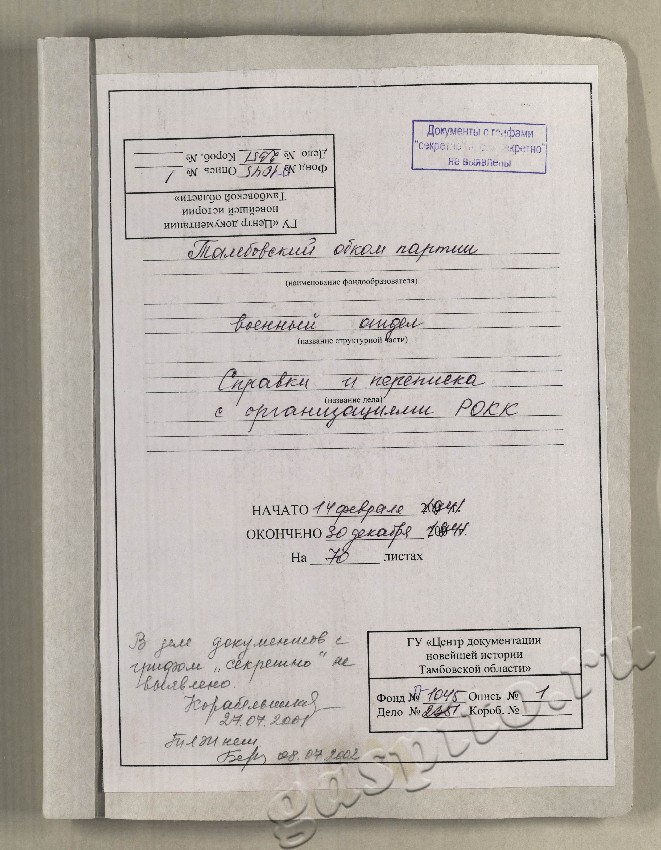 Документы с грифами
"секретно" секретно"
не выявлены
ГУ «Центр документации
новейшей истории
Тамбовской области»
Фонд № 1045 Опись № 1
Дело № 2351 Короб. №
Тамбовский обком партии
(наименование фондообразователя)
военный отдел
(название структурной части)
Справки и переписка
(название дела)
с организациями РОКК
НАЧАТО 14 феврале 1941.
ОКОНЧЕНО 30 декабря 1941.
На 70 листах
В деле документов с
грифом „секретно" не
выявлено.
27.07.2001
08.07.2002
ГУ «Центр документации
новейшей истории
Тамбовской области»
Фонд № П 1045 Опись № 1
Дело № 2351 Короб. №
gaspito.ru